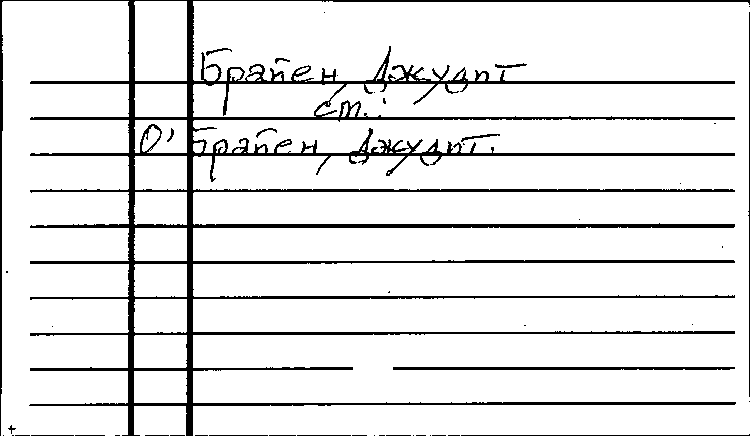 Брайен, Джудит
см.:
О'Брайен, Джудит.